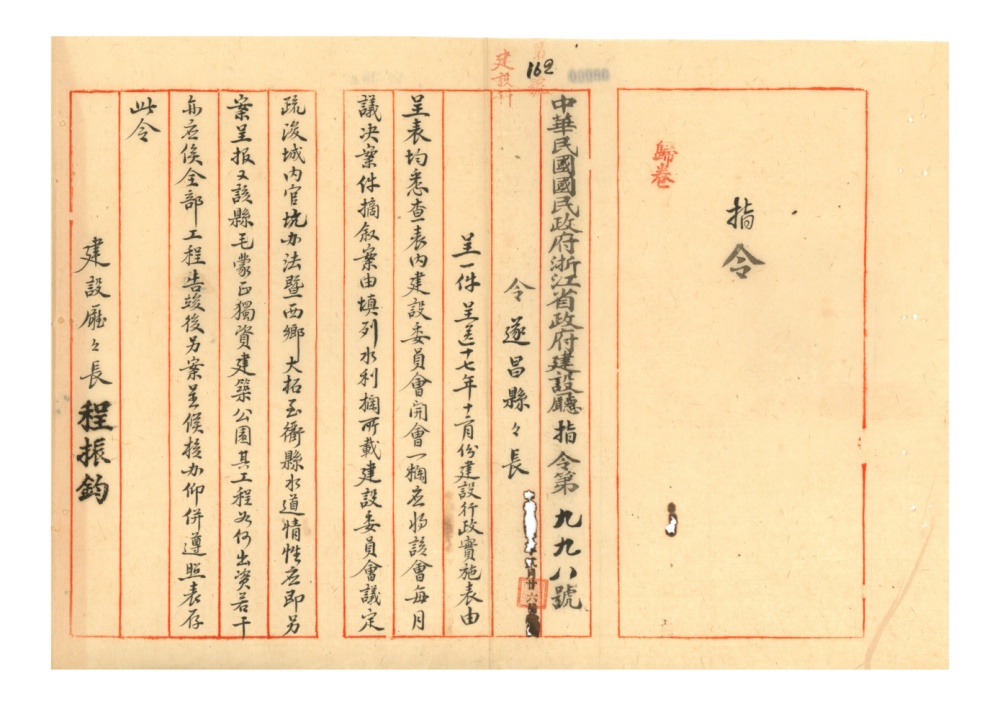 指令
歸卷
00080
162
建設科
中華民國國民政府浙江省政府建設廳指令第九九八號
令遂昌縣々長
呈一件呈送十七年十二月份建設行政實施表由
呈表均悉查表內建設委員會開會一欄应將該會每月
議决案件摘叙案由填列水利欄所載建設委員會議定
疏浚城內官坑办法暨西鄉大柘至衢縣水道情性应即另
案呈报又該縣毛蒙正獨資建築公園其工程如何出资若干
亦应俟全部工程告竣後另案呈候核办仰併遵照表存
此令
建設廳々長程振鈞